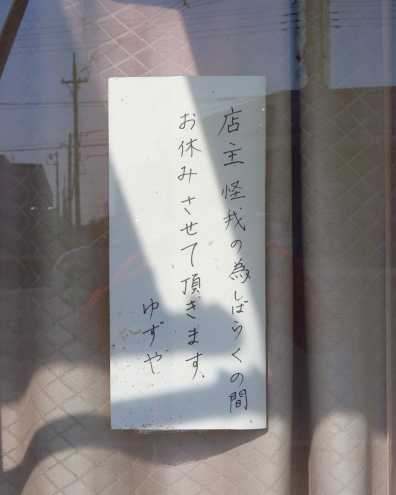 店主怪我の為しばらくの間
お休みさせて頂きます。
ゆずや